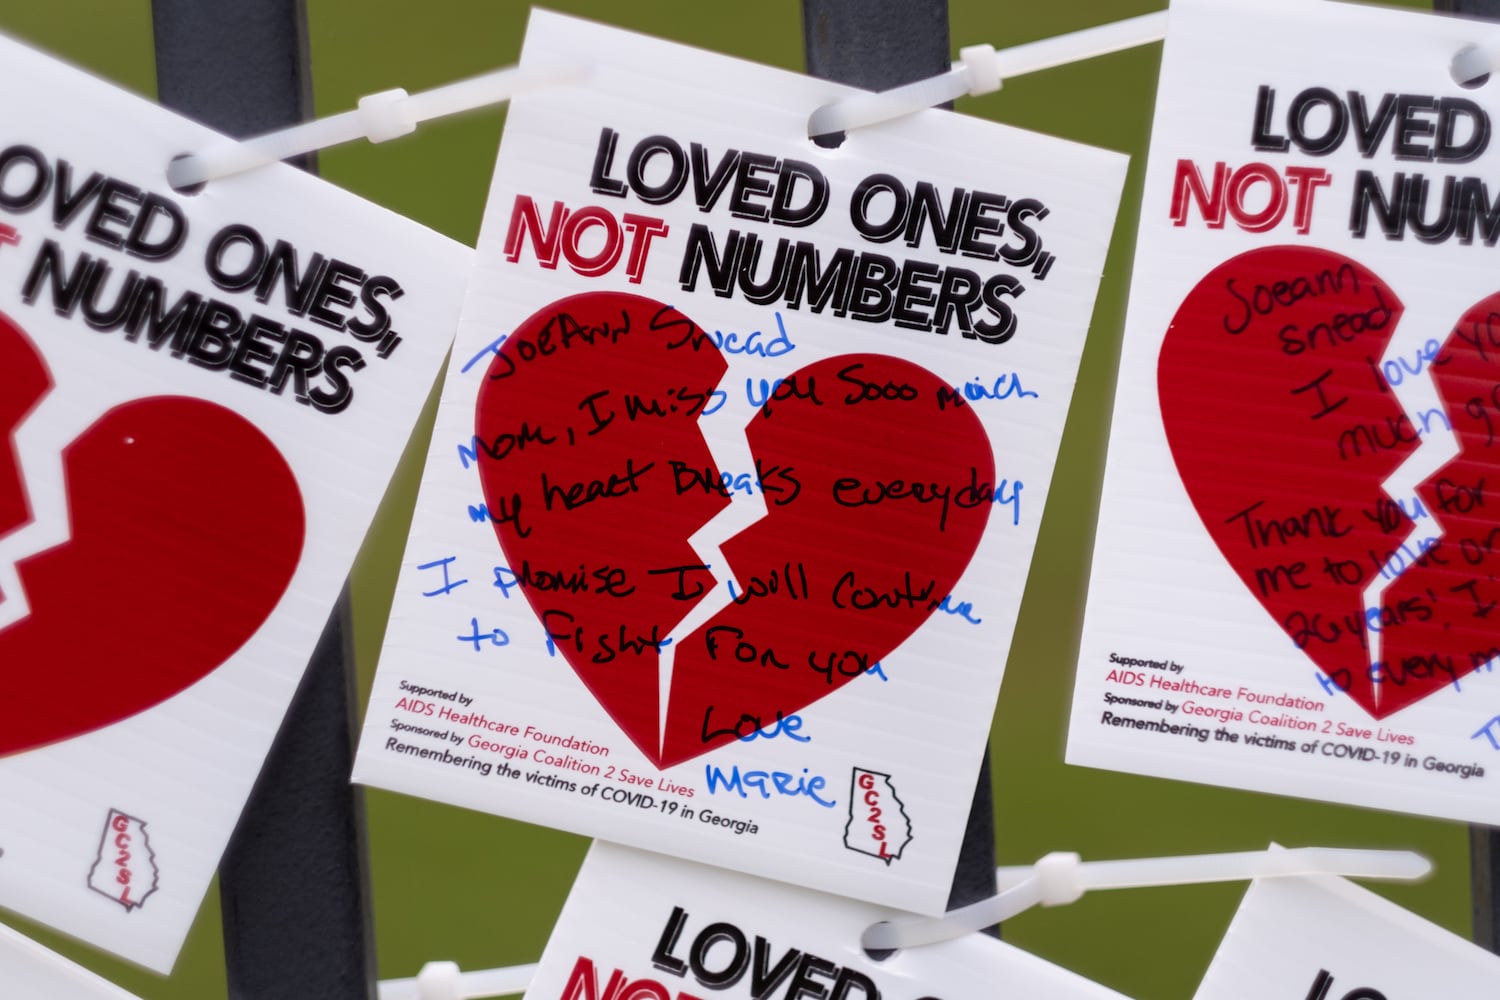 LOVED ONES,
NUMBERS
GC2SL
LOVED ONES,
NOT NUMBERS
JoeAnn Snead
Mom, I miss you Sooo much
my heart Breaks everyday
I promise I will Continue
to Fight For you
Love
Marie
Supported by
AIDS Healthcare Foundation
Sponsored by Georgia Coalition 2 Save Lives
Remembering the victims of COVID-19 in Georgia
GC2SL
LOVED
NOT NUM
Joeann
Snead
I love yo
much
Thank you for
me to love
26 years! I
to every m
Supported by
AIDS Healthcare Foundation
Sponsored by Georgia Coalition 2 Save Lives
Remembering the victims of COVID-19 in Georgia
LOVED
NOT
LO